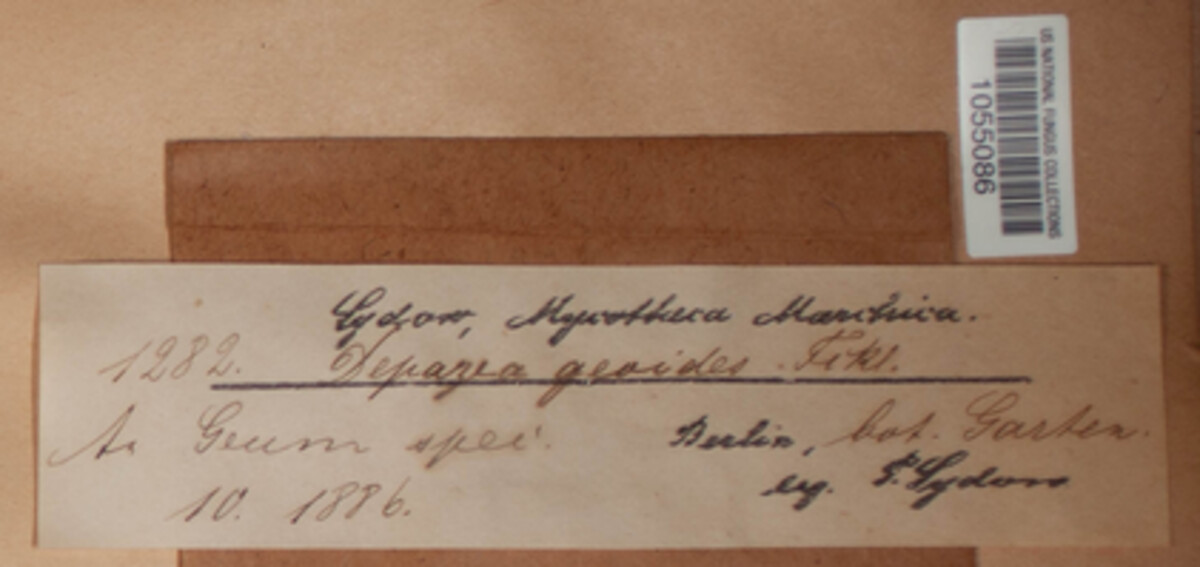 US NATIONAL FUNGUS COLLECTIONS
1055086
Sydow, Mycotheca Marchica.
1282. Depazea geoides Fckl.
Geum spei.
Berlin, bot. Garten.
10. 1886.
leg. P. Sydow